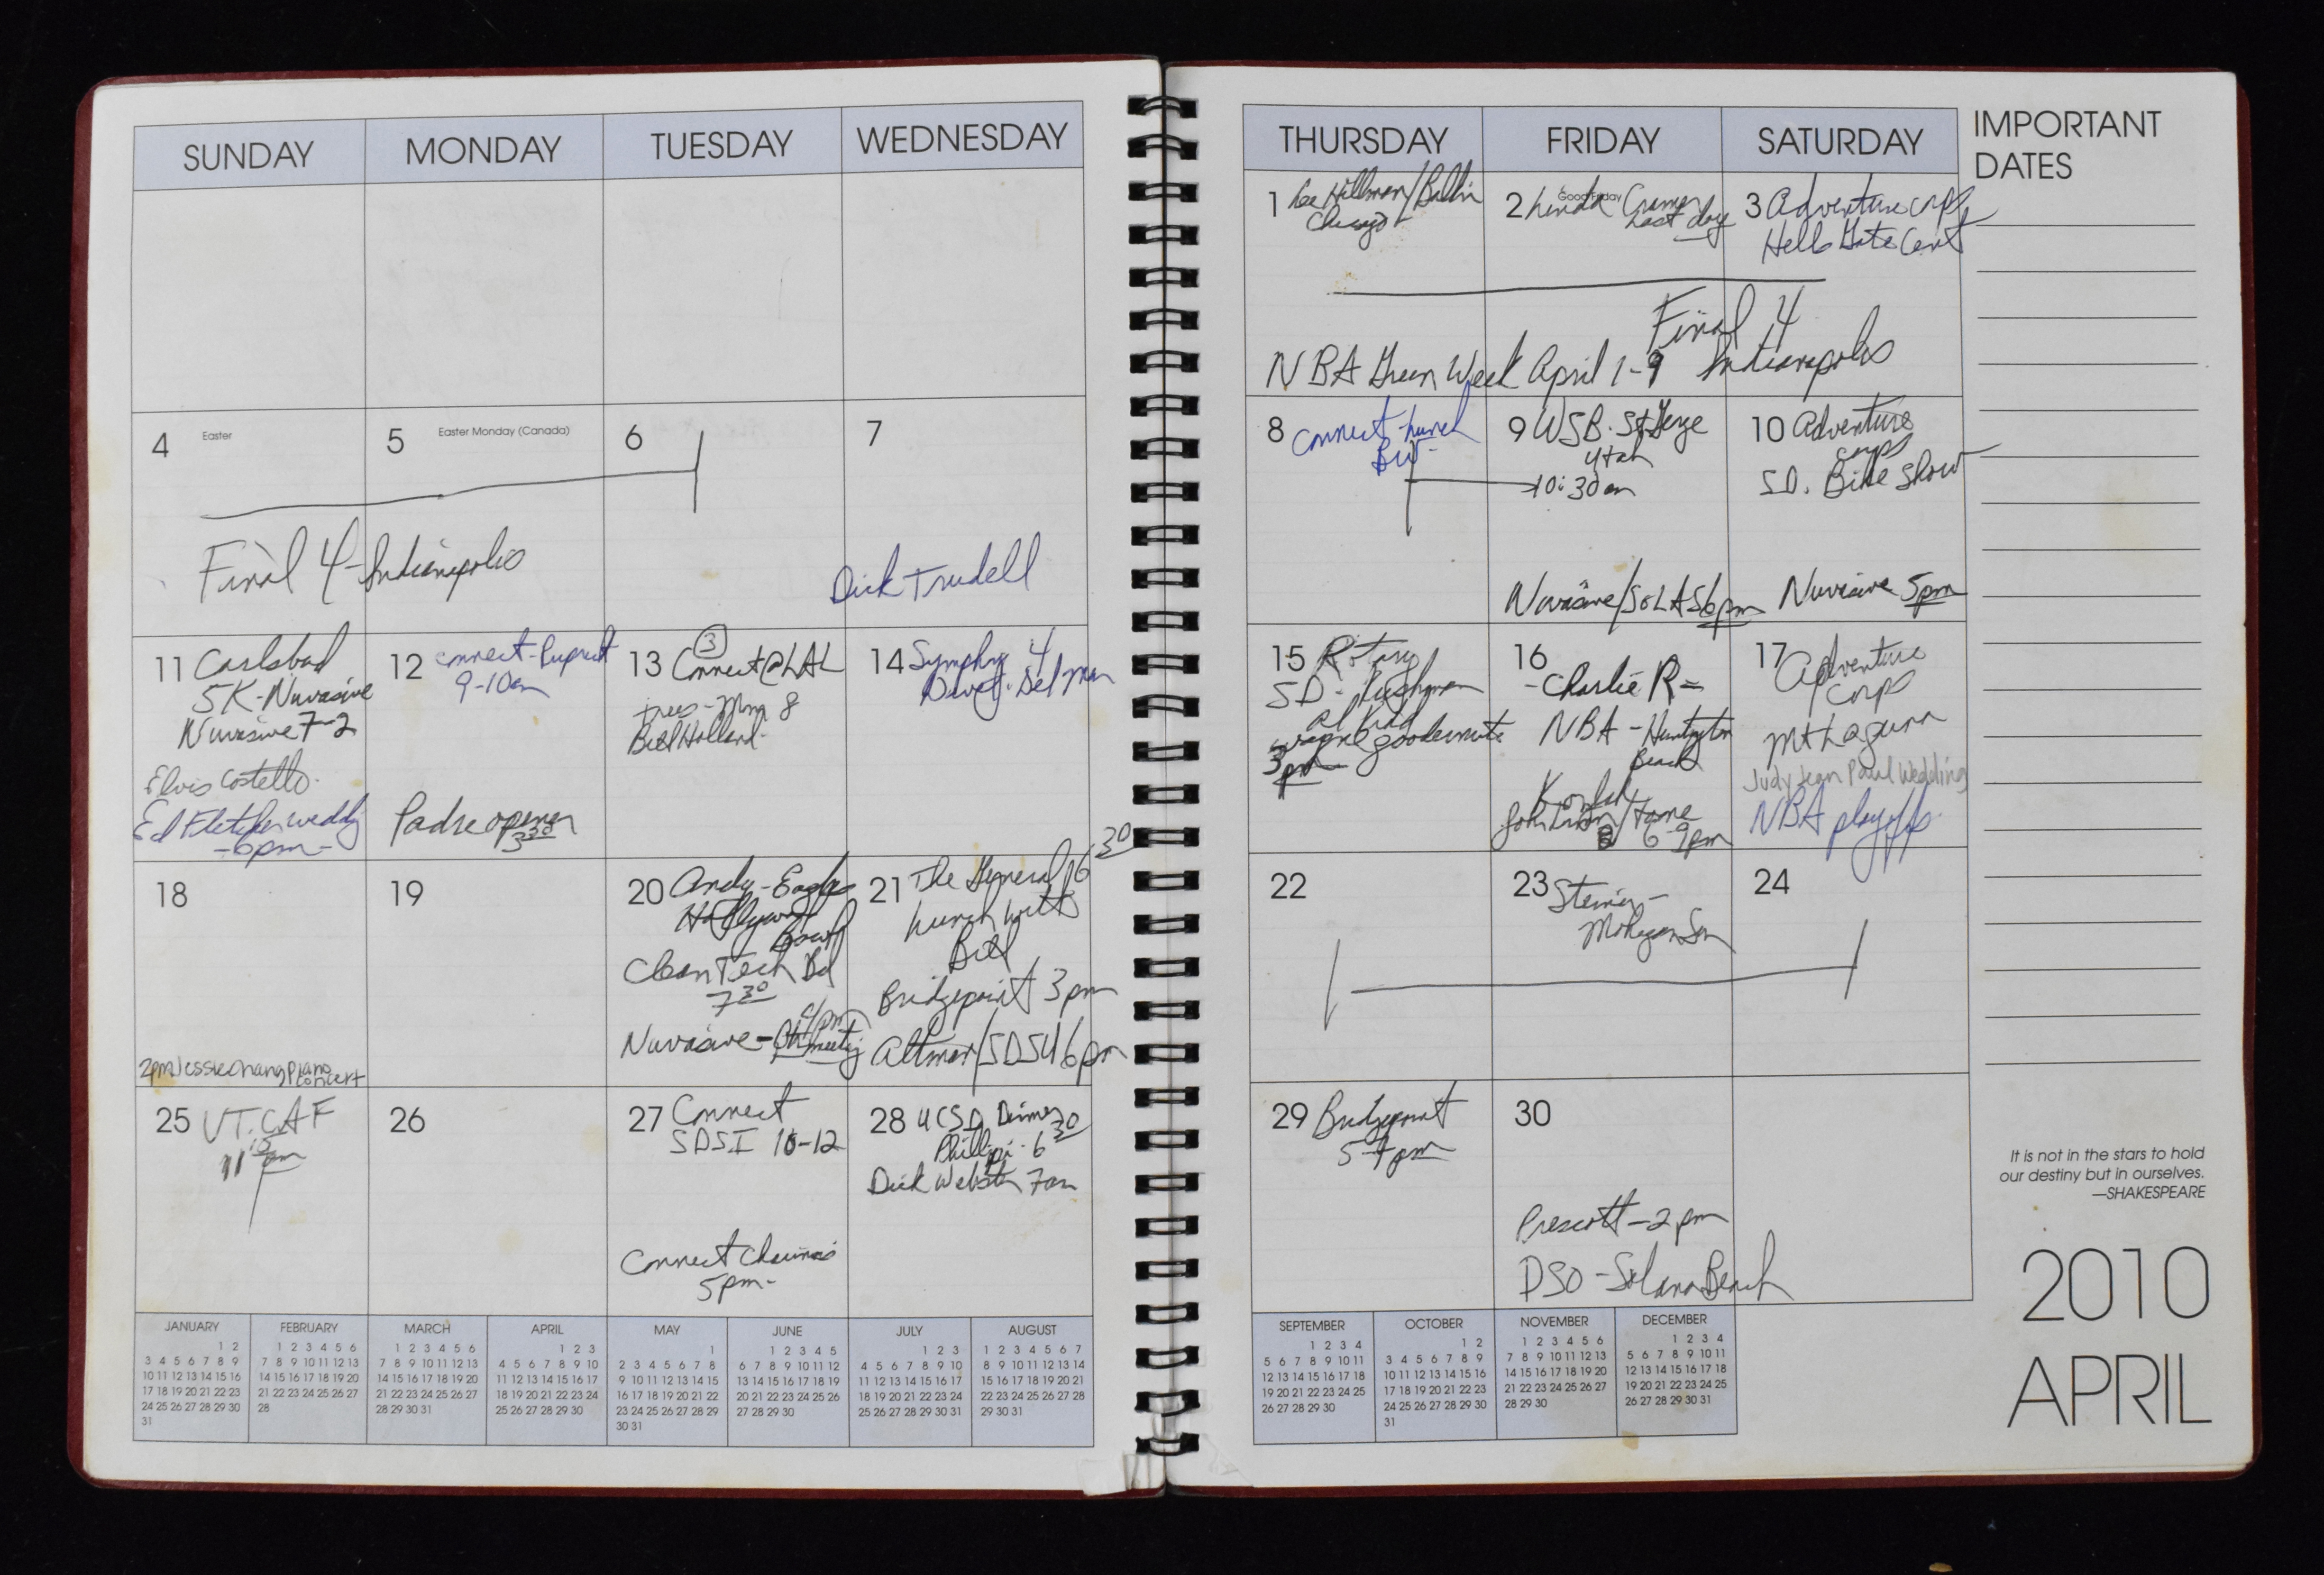 SUNDAY MONDAY TUESDAY WEDNESDAY
4 Easter
5 Easter Monday (Canada)
6
7
Final 4 - Indianapolis
Dick Trudell
11 Carlsbad
5K - Nuvasive
Nuvasive 7-2
Elvis Costello
Ed Fletcher wedding
- 6pm -
12 Connect -
9-10am
Padre opener
3 30
13 Connect @ LAL
3
trees - Mom 8
Bill Holland
14 Symphny 4
Del Mar
18
2pm Jessie Chang Piano
concert
19
20 Andy - Eagles
Hollywood
Bowl
Clean Tech Bd
7 30
Nuvasive -
4pm
meeting
21 The General 6 30
Lunch with
Bill
Bridgepoint 3pm
Altman/SDSU 6pm
25 VT. CAF
11 15 am
26
27 Connect
SDSI 10-12
Connect
5pm -
28 UCSD Dinner
6 30
Dick Webster 7am
JANUARY
1 2
3 4 5 6 7 8 9
10 11 12 13 14 15 16
17 18 19 20 21 22 23
24 25 26 27 28 29 30
31
FEBRUARY
1 2 3 4 5 6
7 8 9 10 11 12 13
14 15 16 17 18 19 20
21 22 23 24 25 26 27
28
MARCH
1 2 3 4 5 6
7 8 9 10 11 12 13
14 15 16 17 18 19 20
21 22 23 24 25 26 27
28 29 30 31
APRIL
1 2 3
4 5 6 7 8 9 10
11 12 13 14 15 16 17
18 19 20 21 22 23 24
25 26 27 28 29 30
MAY
1
2 3 4 5 6 7 8
9 10 11 12 13 14 15
16 17 18 19 20 21 22
23 24 25 26 27 28 29
30 31
JUNE
1 2 3 4 5
6 7 8 9 10 11 12
13 14 15 16 17 18 19
20 21 22 23 24 25 26
27 28 29 30
JULY
1 2 3
4 5 6 7 8 9 10
11 12 13 14 15 16 17
18 19 20 21 22 23 24
25 26 27 28 29 30 31
AUGUST
1 2 3 4 5 6 7
8 9 10 11 12 13 14
15 16 17 18 19 20 21
22 23 24 25 26 27 28
29 30 31
THURSDAY FRIDAY SATURDAY
IMPORTANT
DATES
1 Lee Hillman/Ballin
Chicago
2 Good Friday
Linda Cramer
Last day
3 Adventure corps
Hells Gate Cent
Final 4
NBA Green Week April 1-9 Indianapolis
8 Connect - Lunch
BW -
9 WSB. St George
Utah
10:30am
Nuvasive/SOLAS 6pm
10 Adventure
corps
S.D. Bike Show
Nuvasive 5pm
15 Rotary
SD -
Al Kidd
3 pm
16
- Charlie R -
NBA - Huntington
Beach
6-9pm
17 Adventure
corps
Mt Laguna
Judy Jean Paul Wedding
NBA playoffs
22
23 Steiner -
Mohegan Sun
24
29 Bridgepoint
5-7pm
30
Prescott - 2pm
DSO - Solana Beach
It is not in the stars to hold
our destiny but in ourselves.
—SHAKESPEARE
2010
APRIL
SEPTEMBER
1 2 3 4
5 6 7 8 9 10 11
12 13 14 15 16 17 18
19 20 21 22 23 24 25
26 27 28 29 30
OCTOBER
1 2
3 4 5 6 7 8 9
10 11 12 13 14 15 16
17 18 19 20 21 22 23
24 25 26 27 28 29 30
31
NOVEMBER
1 2 3 4 5 6
7 8 9 10 11 12 13
14 15 16 17 18 19 20
21 22 23 24 25 26 27
28 29 30
DECEMBER
1 2 3 4
5 6 7 8 9 10 11
12 13 14 15 16 17 18
19 20 21 22 23 24 25
26 27 28 29 30 31